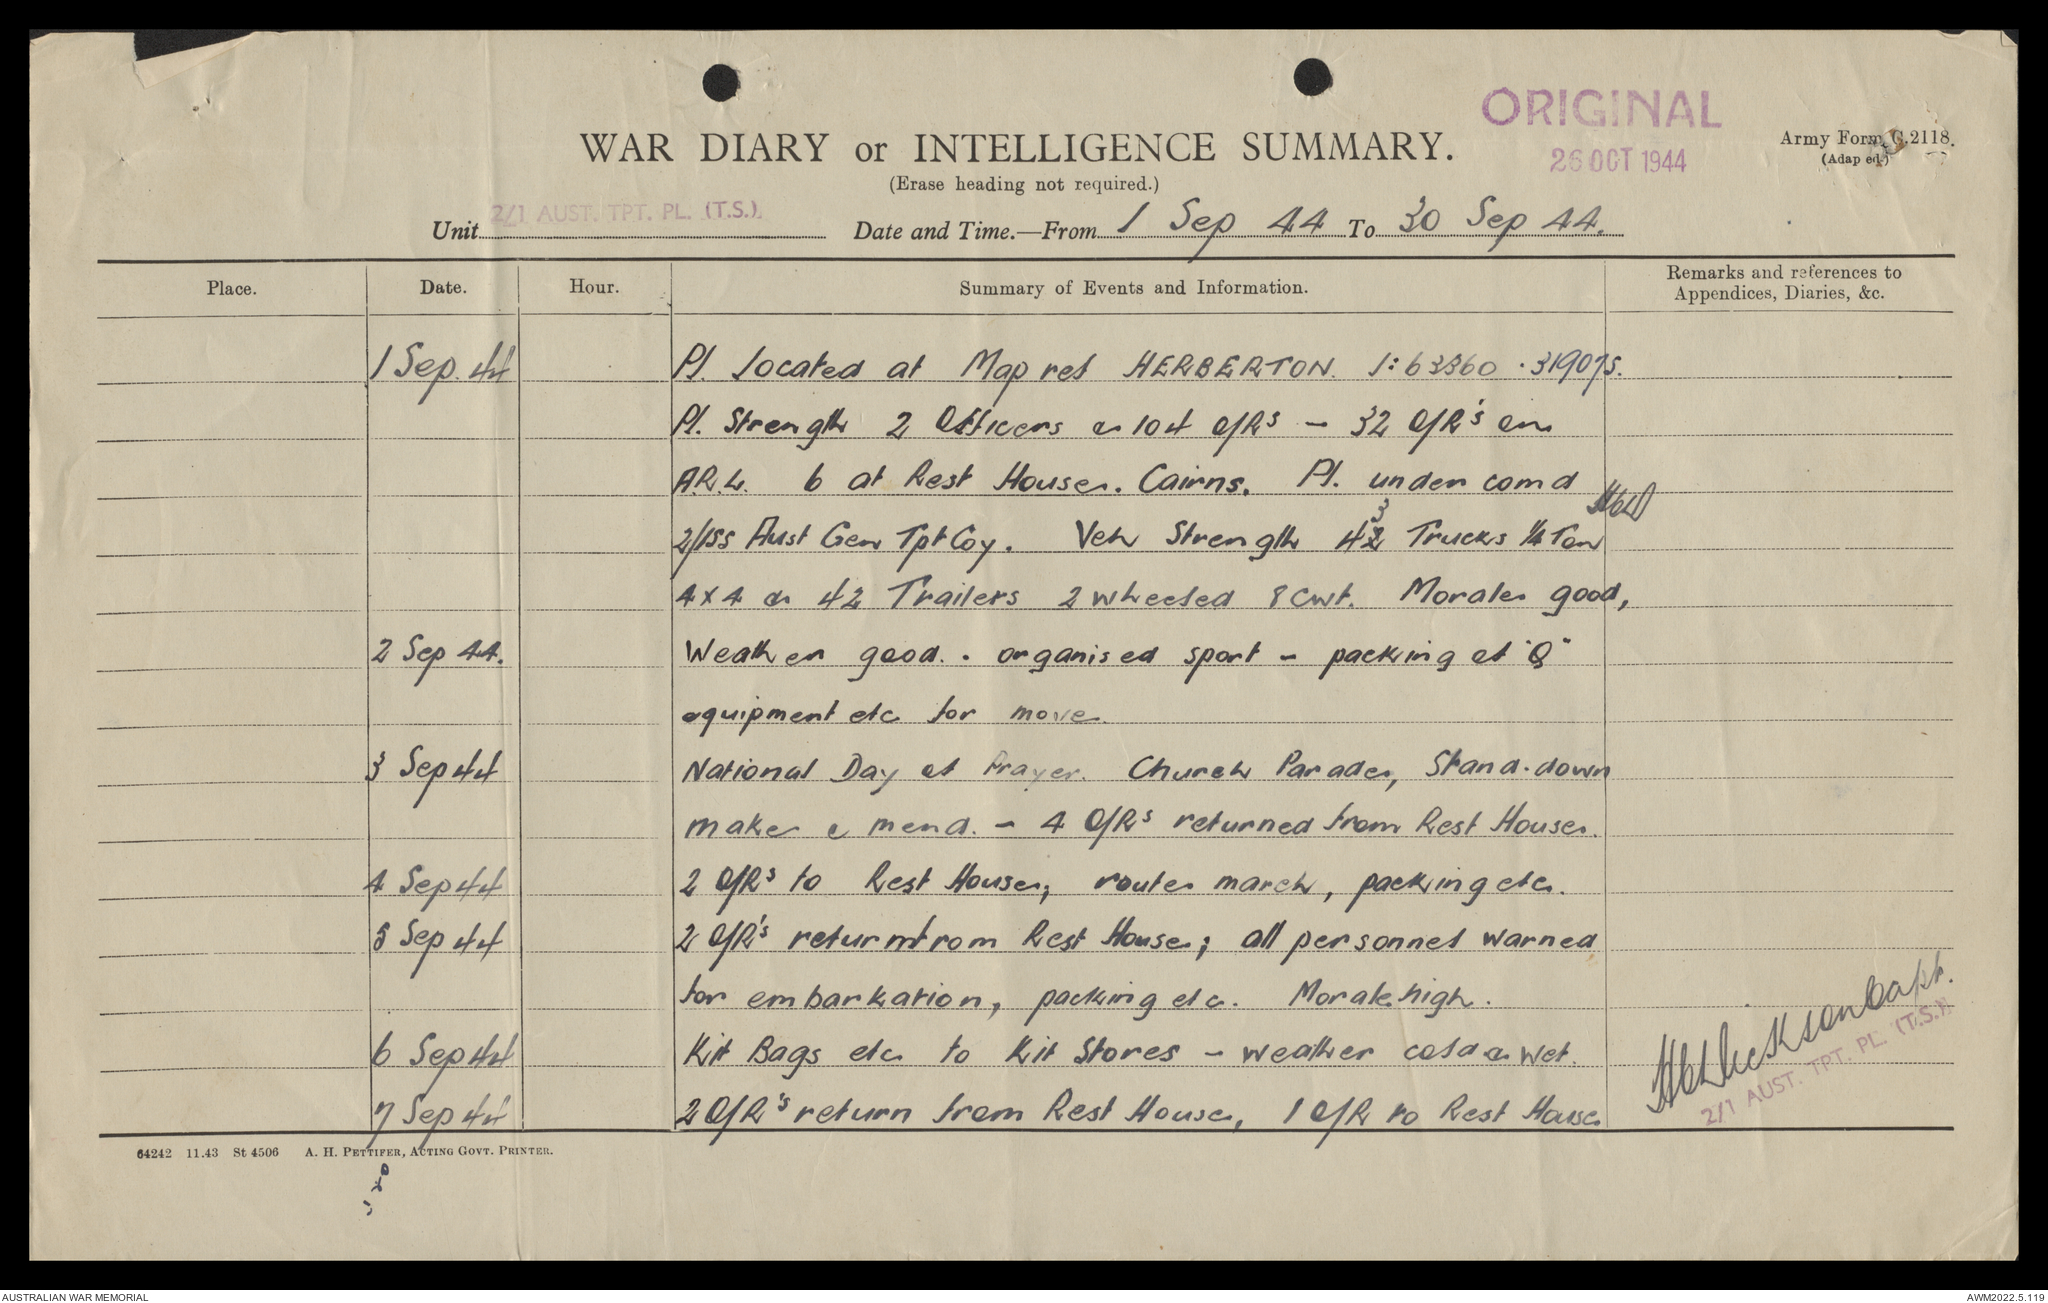 ORIGINAL
26 OCT 1944
Army Form C.2118.
(Adap ed.)
WAR DIARY or INTELLIGENCE SUMMARY.
(Erase heading not required.)
Unit 2/1 AUST. TPT. PL. (T.S.) Date and Time.—From 1 Sep 44 To 30 Sep 44.
Place. Date. Hour. Summary of Events and Information. Remarks and references to Appendices, Diaries, &c.
1 Sep. 44 Pl. located at Map ref HERBERTON. 1:63360 . 319075.
Pl. Strength 2 Officers & 104 O/Rs – 32 O/R's on
A.R.L. 6 at Rest House. Cairns. Pl. under comd
2/155 Aust Gen Tpt Coy. Veh Strength 43 Trucks 1/4 Ton
4x4 & 42 Trailers 2 wheeled 8 cwt. Morale good,
2 Sep 44. Weather good. . organised sport – packing of "Q"
equipment etc for move.
3 Sep 44 National Day of Prayer. Church Parade, Stand-down
make & mend. – 4 O/Rs returned from Rest House.
4 Sep 44 2 O/Rs to Rest House; route march, packing etc.
5 Sep 44 2 O/R's return from Rest House; all personnel warned
for embarkation, packing etc. Morale high.
6 Sep 44 Kit Bags etc to Kit Stores – weather cold & wet.
7 Sep 44 2 O/R's return from Rest House, 1 O/R to Rest House
Dickson Capt.
2/1 AUST. TPT. PL. (T.S.)
64242 11.43 St 4506 A. H. PETTIFER, ACTING GOVT. PRINTER.
AUSTRALIAN WAR MEMORIAL
AWM2022.5.119